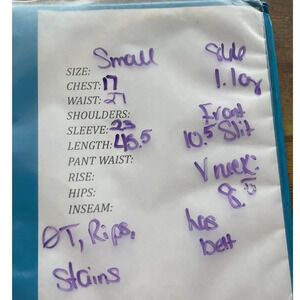 Small
SIZE:
CHEST: 17
WAIST: 27
SHOULDERS:
SLEEVE: 23
LENGTH: 46.5
PANT WAIST:
RISE:
HIPS:
INSEAM:
ØT, Rips,
Stains
Side
Front
10.5 Slit
V neck:
8.5
has
belt